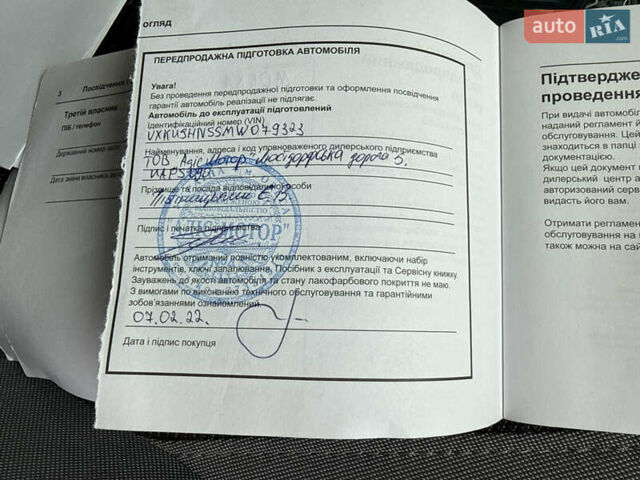 ОГЛЯД
ПЕРЕДПРОДАЖНА ПІДГОТОВКА АВТОМОБІЛЯ
Увага!
Без проведення передпродажної підготовки та оформлення посвідчення
гарантії автомобіль реалізації не підлягає.
Автомобіль до експлуатації підготовлений
Ідентифікаційний номер (VIN)
VXKUSHNSSMW079323
Найменування, адреса і код уповноваженого дилерського підприємства
ТОВ Адіс Мотор дорога 5.
Прізвище та посада відповідальної особи
Підпис і печатка підприємства
МОТОР"
Автомобіль отриманий повністю укомплектованим, включаючи набір
інструментів, ключі запалювання, Посібник з експлуатації та Сервісну книжку.
Зауважень до якості автомобіля та стану лакофарбового покриття не маю.
З вимогами по виконанню технічного обслуговування та гарантійними
зобов'язаннями ознайомлений.
07.02.22.
Дата і підпис покупця
3 Посвідчення
Третій власник
ПІБ / телефон
Державний номер авто
Дата зміни власника авто
auto RIA .com
Підтвердже
проведення
При видачі автомобіл
наданий регламент й
обслуговування. Цей
знаходитися в папці з
документацією.
Якщо цей документ
дилерський центр а
авторизований серві
видасть його вам.
Отримати регламен
обслуговування на
також можна на сай